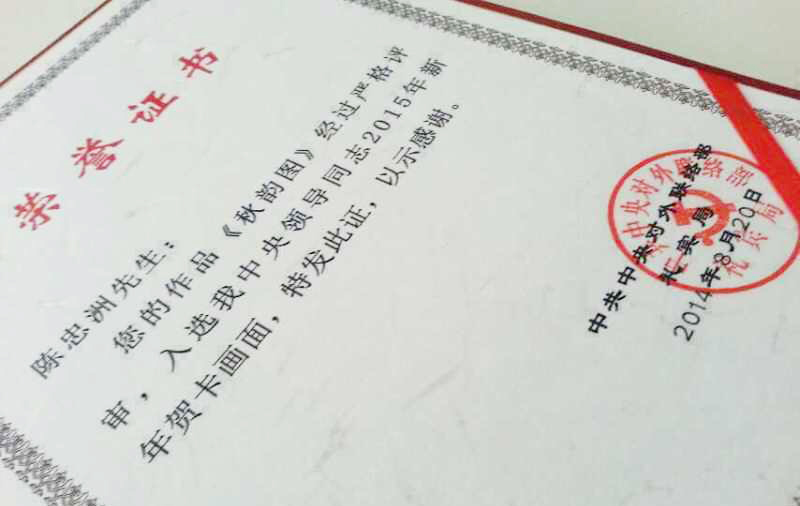 荣誉证书
陈忠洲先生：
您的作品《秋韵图》经过严格评
审，入选我中央领导同志2015年新
年贺卡画面，特发此证，以示感谢。
中共中央对外联络部
礼宾局
2014年8月20日